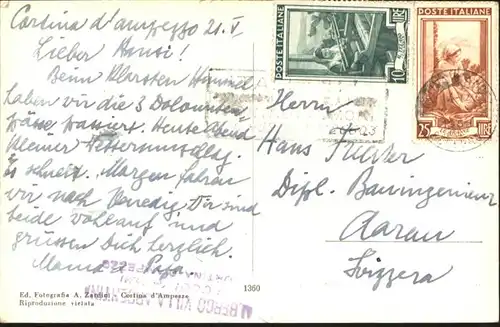 Cortina d'ampezzo 21.V
Lieber Hansi!
Beim klarsten Himmel
haben wir die 3 Dolomiten-
pässe passiert. Heute Abend
kleiner Wetterumschlag.
Es schneit. Morgen fahren
wir nach Venedig. Wir sind
beide wohlauf und
grüssen Dich herzlich.
Mama & Papa.
POSTE ITALIANE
10 LIRE
POSTE ITALIANE
25 LIRE
Herrn
Hans
Dipl. Bauingenieur
Aarau
Svizzera
ALBERGO VILLA ARGENTINA
CORTINA D'AMPEZZO
1360
Ed. Fotografia A. Zardini - Cortina d'Ampezzo
Riproduzione vietata